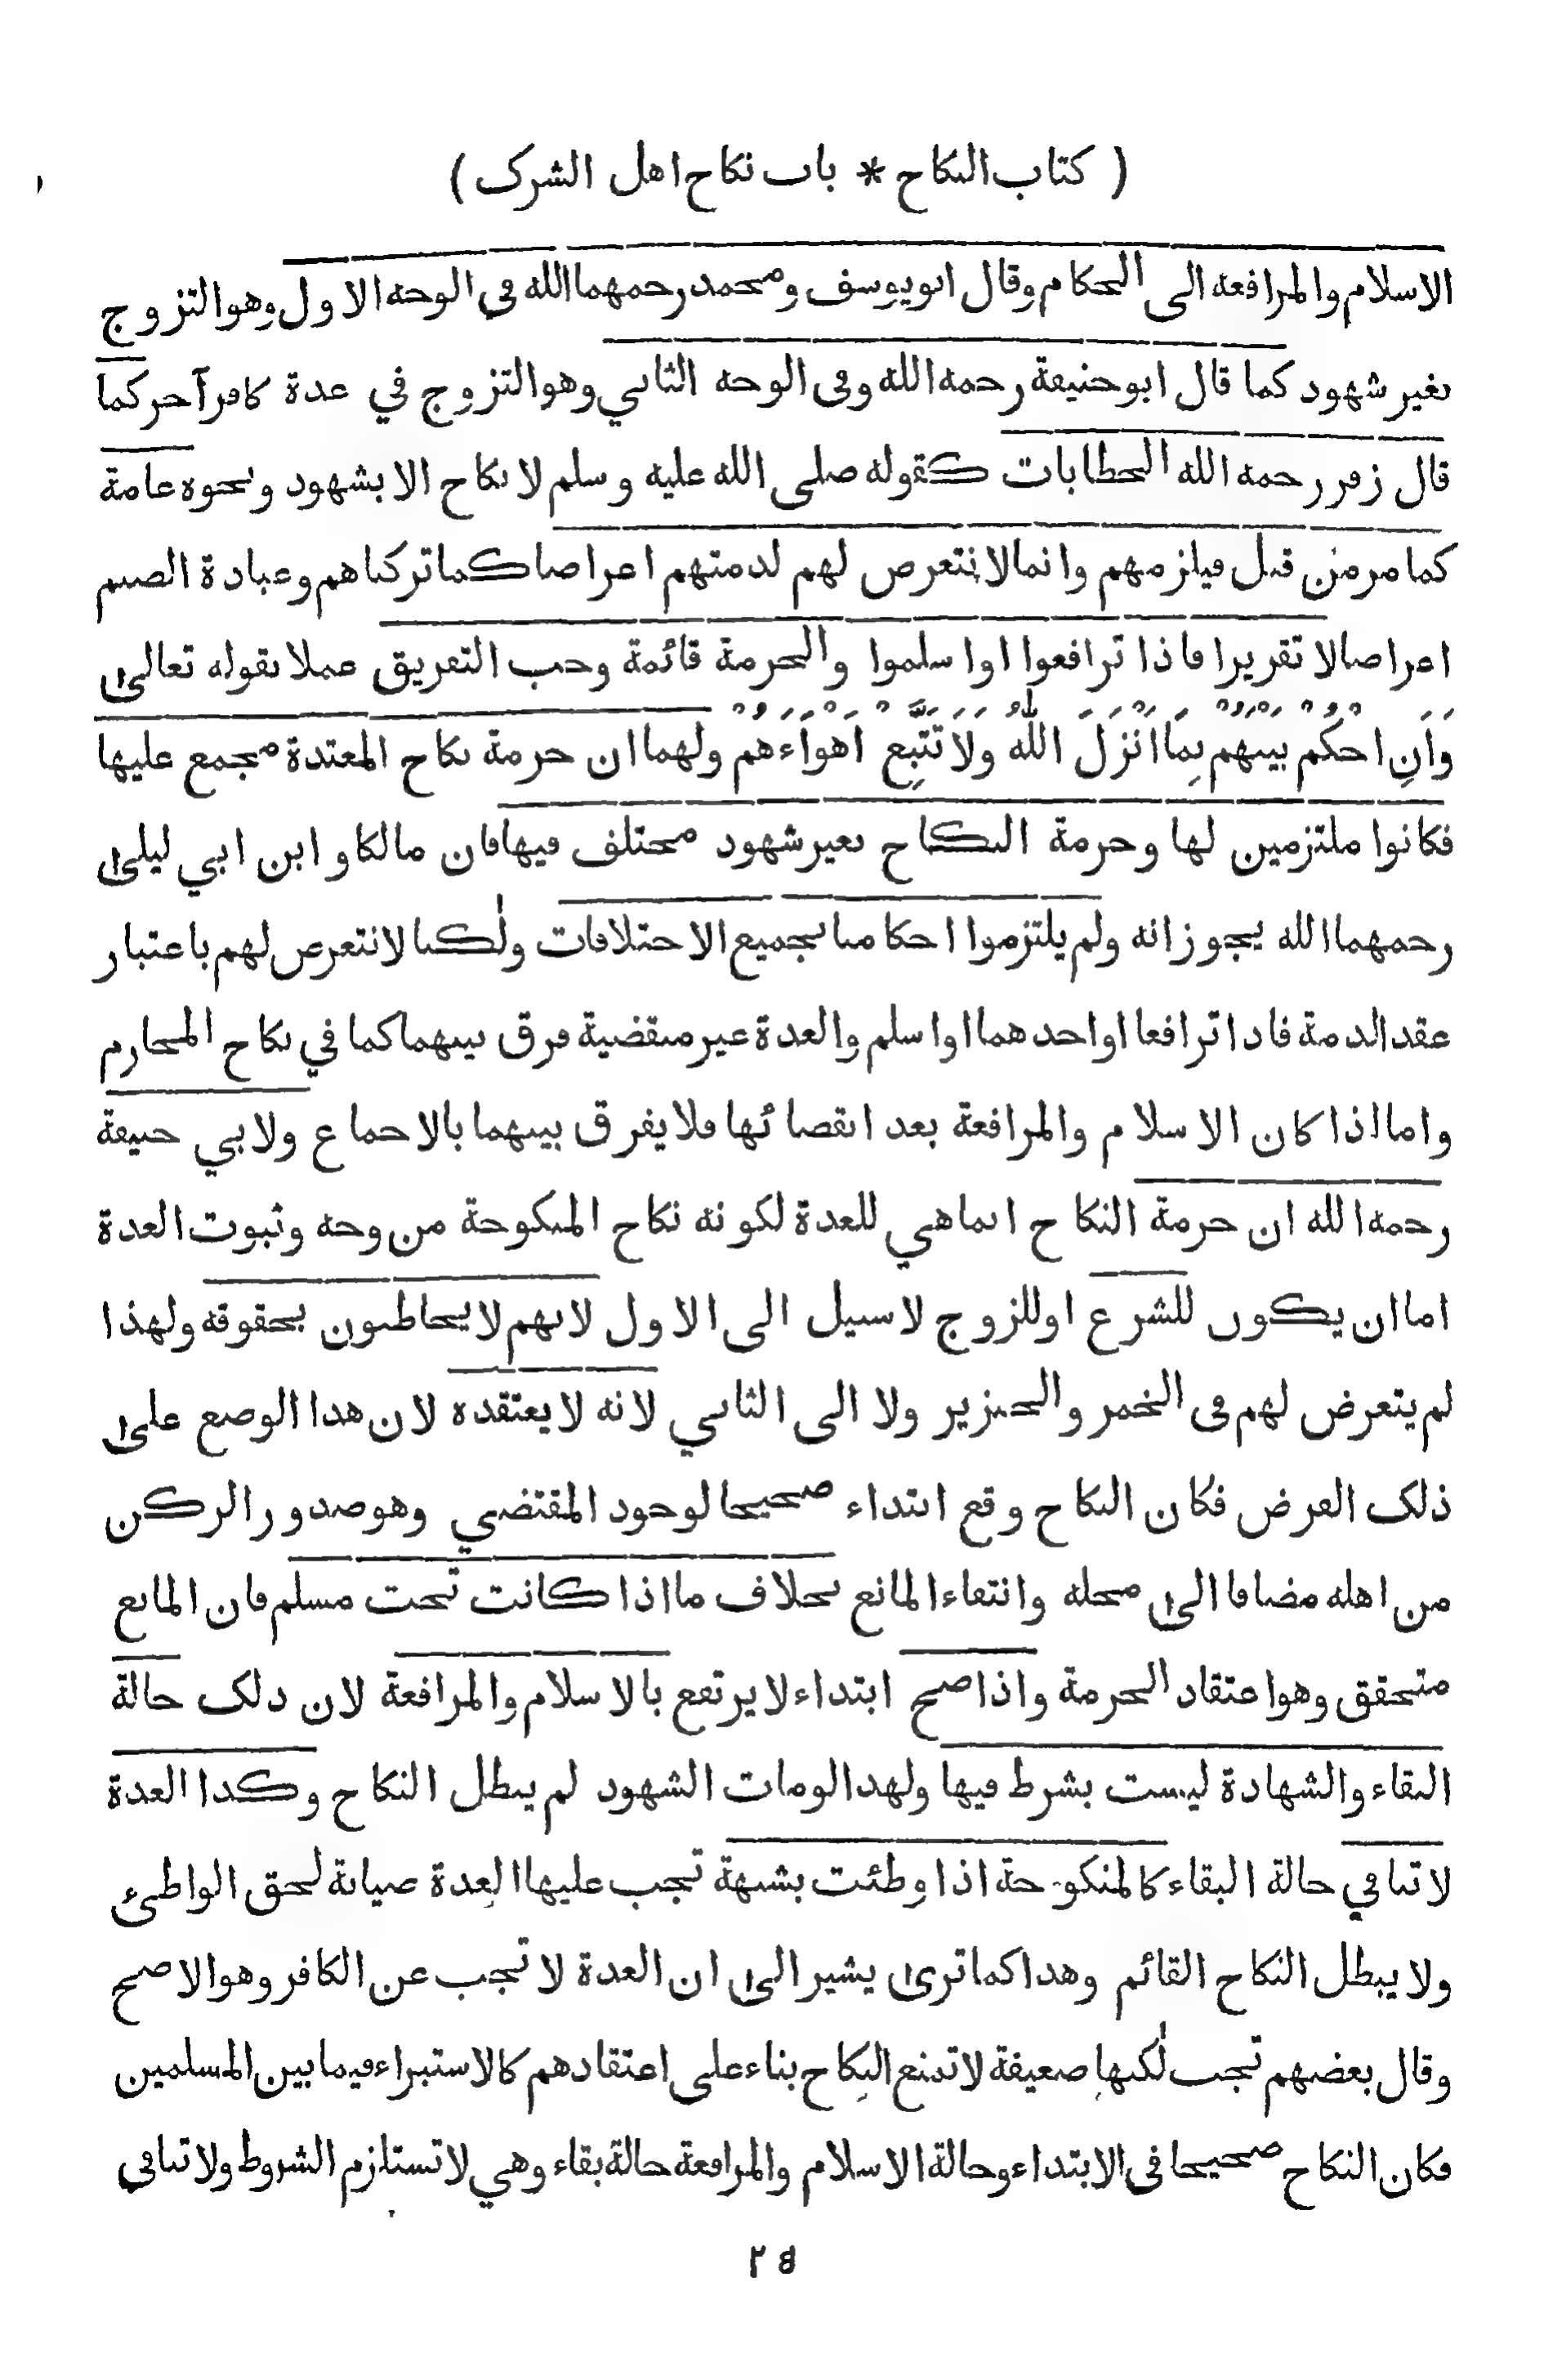 ( كتاب النكاح * باب نكاح اهل الشرك )
الاسلام والمرافعة الى الحكام وقال ابويوسف ومحمد رحمهما الله في الوجه الاول وهو التزوج
بغير شهود كما قال ابوحنيفة رحمه الله وفى الوجه الثاني وهو التزوج في عدة كافر آخر كما
قال زفر رحمه الله الخطابات كقوله صلى الله عليه وسلم لا نكاح الا بشهود ونحوه عامة
كما مر من قبل فيلزمهم وانما لا نتعرض لهم لذمتهم اعراضا كما تركناهم وعبادة الصنم
اعراضا لا تقريرا فاذا ترافعوا او اسلموا والحرمة قائمة وجب التفريق عملا بقوله تعالى
وَاَنِ احْكُم بَيْنَهُم بِمَا اَنْزَلَ اللّٰهُ وَلَا تَتَّبِع اَهْوَاءَهُم ولهما ان حرمة نكاح المعتدة مجمع عليها
فكانوا ملتزمين لها وحرمة النكاح بغير شهود مختلف فيها فان مالكا و ابن ابي ليلى
رحمهما الله يجوزانه ولم يلتزموا احكامنا بجميع الاختلافات ولٰكنا لا نتعرض لهم باعتبار
عقد الذمة فاذا ترافعا او احدهما او اسلم والعدة غير منقضية فرق بينهما كما في نكاح المحارم
واما اذا كان الاسلام والمرافعة بعد انقضائها فلا يفرق بينهما بالاجماع ولابي حنيفة
رحمه الله ان حرمة النكاح انما هي للعدة لكونه نكاح المنكوحة من وجه وثبوت العدة
اما ان يكون للشرع او للزوج لا سبيل الى الاول لانهم لا يخاطبون بحقوقه ولهذا
لم يتعرض لهم فى الخمر والخنزير ولا الى الثاني لانه لا يعتقده لان هذا الوضع على
ذلك الفرض فكان النكاح وقع ابتداء صحيحا لوجود المقتضي وهو صدور الركن
من اهله مضافا الى محله وانتفاء المانع بخلاف ما اذا كانت تحت مسلم فان المانع
متحقق وهو اعتقاد الحرمة واذا صح ابتداء لا يرتفع بالاسلام والمرافعة لان ذلك حالة
البقاء والشهادة ليست بشرط فيها ولهذا لو مات الشهود لم يبطل النكاح وكذا العدة
لا تنافي حالة البقاء كالمنكوحة اذا وطئت بشبهة تجب عليها العدة صيانة لحق الواطئ
ولا يبطل النكاح القائم وهذا كما ترى يشير الى ان العدة لا تجب عن الكافر وهو الاصح
وقال بعضهم تجب لٰكنها ضعيفة لا تمنع النكاح بناء على اعتقادهم كالاستبراء فيما بين المسلمين
فكان النكاح صحيحا فى الابتداء وحالة الاسلام والمرافعة حالة بقاء وهي لا تستلزم الشروط ولا تنافي